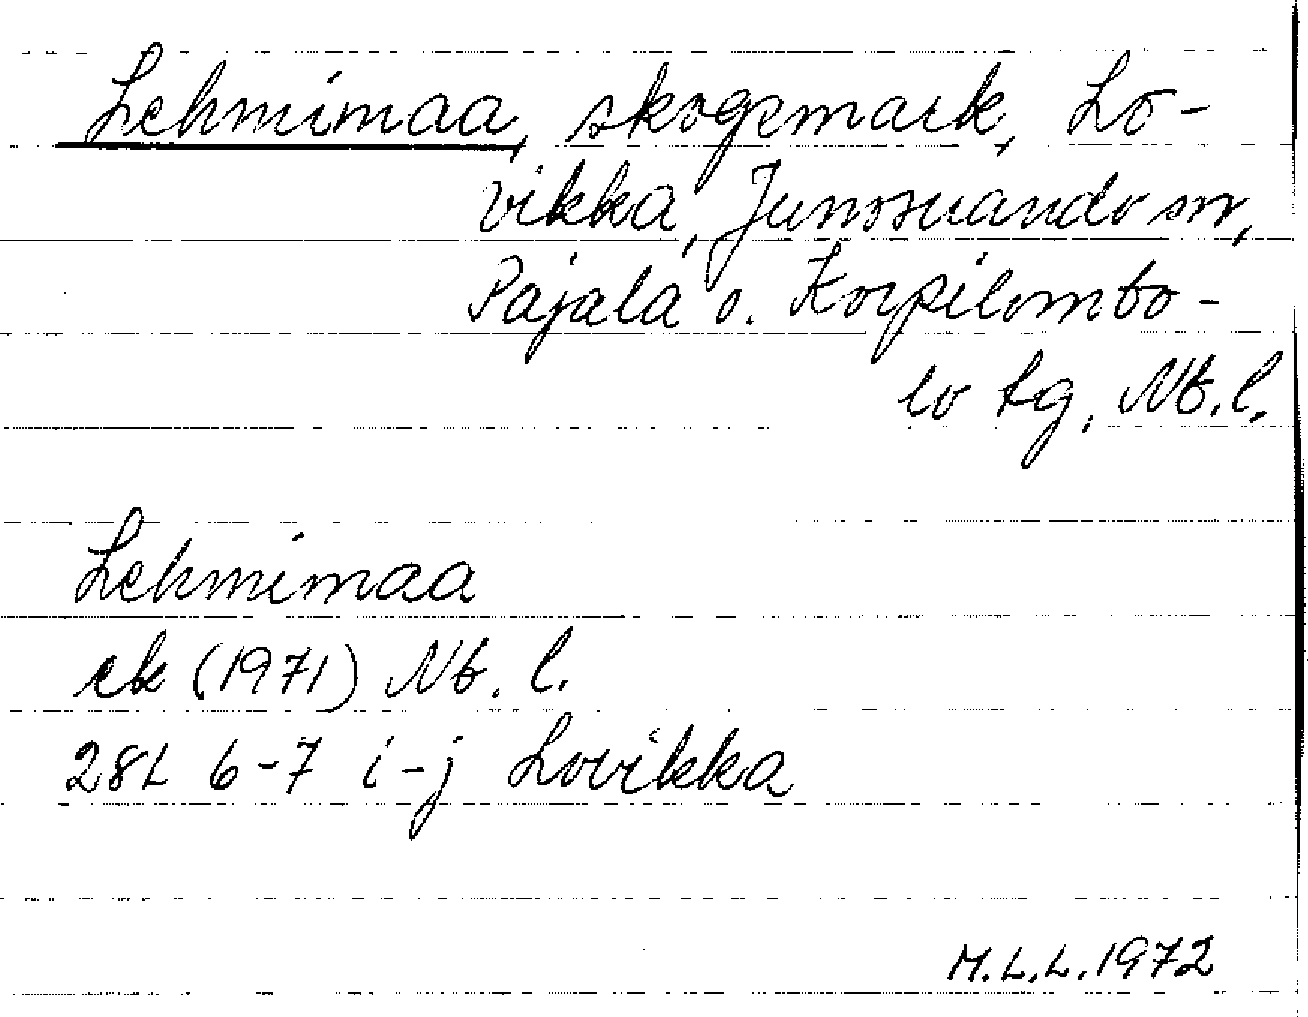 Lehmimaa, skogsmark, Lo-
vikka, Junosuando sn,
Pajala o. Korpilombo-
lo tg, Nb.l.
Lehmimaa
ek (1971) Nb. l.
28L 6-7 i-j Lovikka
M.L.L. 1972